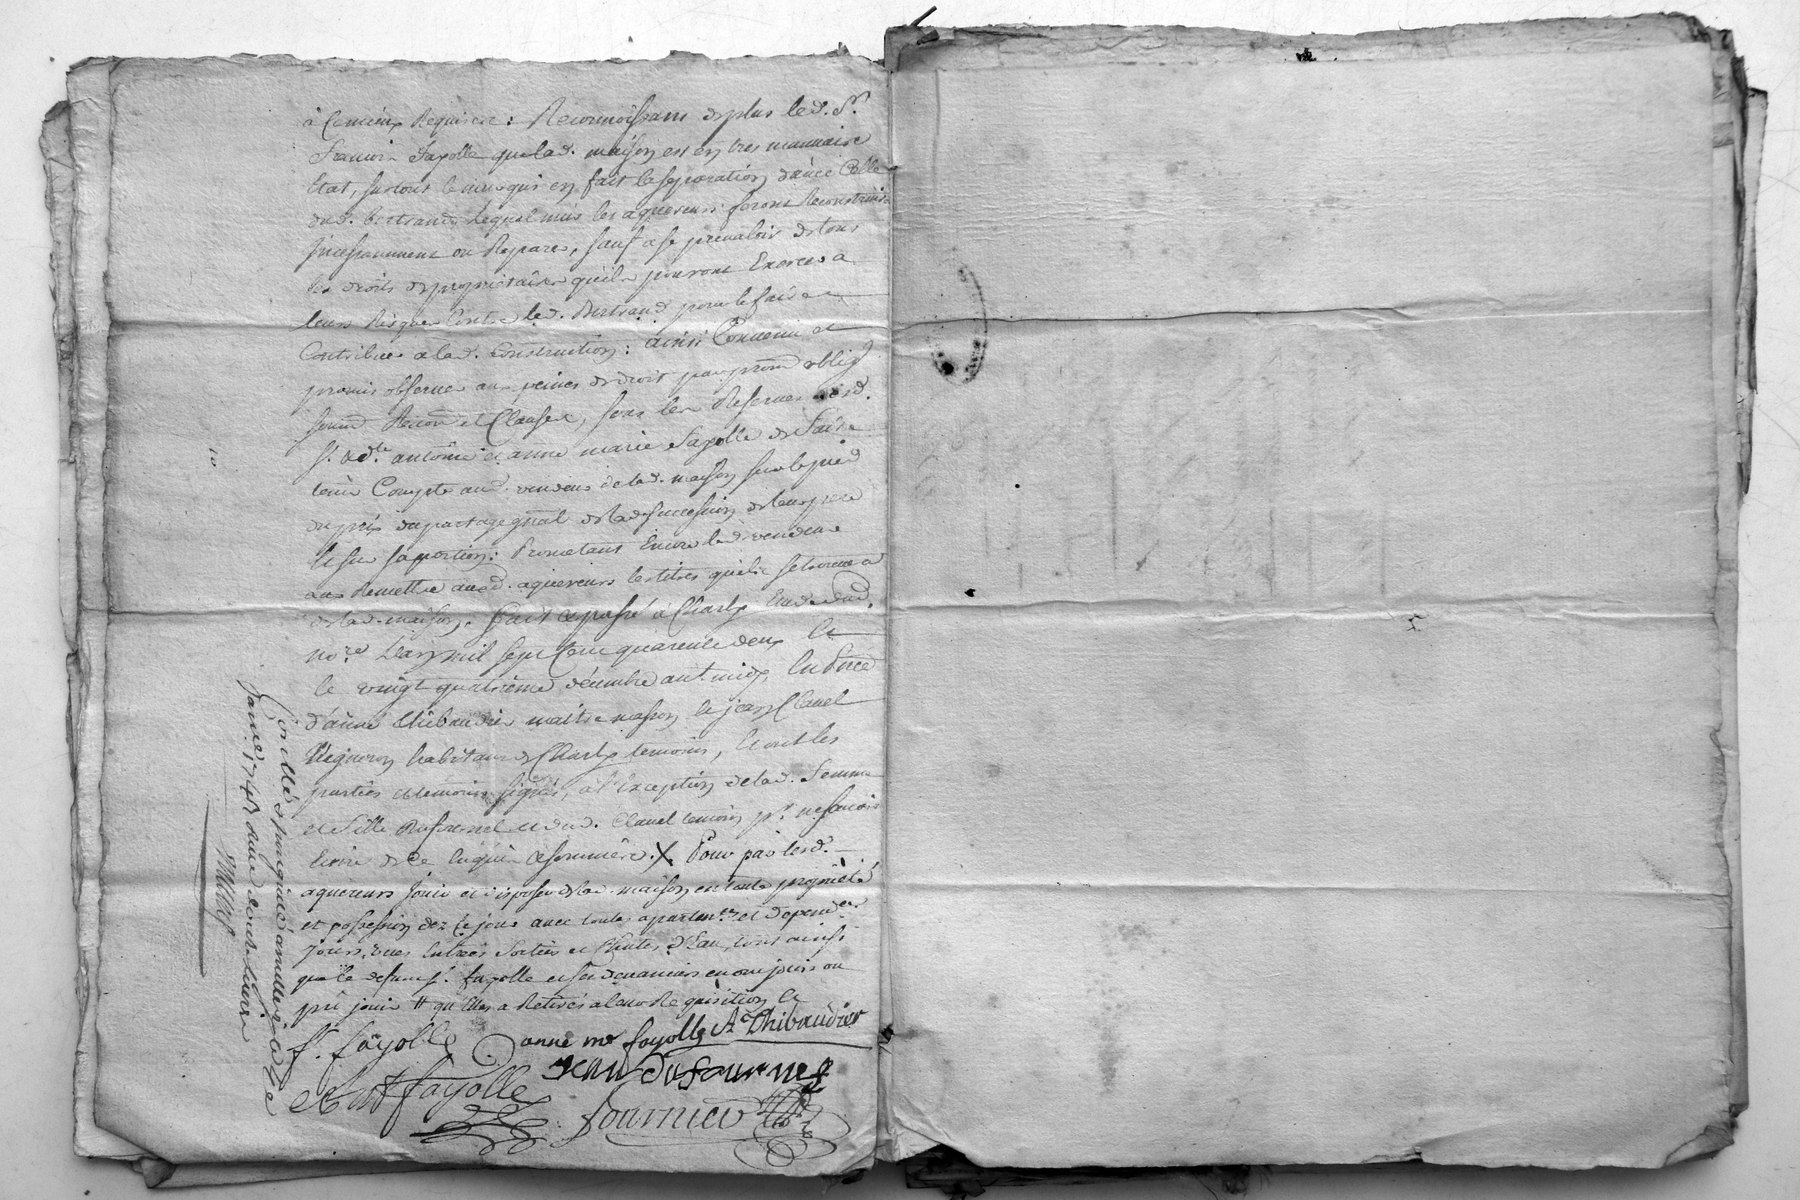 à Ce mieux Requises: Reconnoissant de plus led. Sr.
Francois Fayolle que lad. maison est en tres mauvaise
Etat, surtout le mur qui en fait la separation d'avec Celle
dud. Bertrand, lequel mur les aquereurs feront Reconstruire
Incessamment ou Reparer, sauf a se prevaloir de tous
les droits de proprietaire qu'ils pourront Exercer a
leurs Risques Contre led. Bertrand pour le faire
Contribuer a lad. Construction: ainsi Convenu et
promis observer aux peines de droit par prom oblig
soum Renon et Clauses, sous les Reserves desd.
Sr. & dlle. antoine et anne marie Fayolle de faire
tenir Compte aud. vendeur de lad. maison sur le pied
du prix du partage gnal de la succession de leur pere
Promettant Encore led. vendeur
Remettre auxd. aquereurs les titres qu'il se trouve a
de lad. maison. fait et passé a Charly Etude dud.
nore. L'an mil sept Cent quarente deux et
le vingt quatrieme decembre avant midy, En Pnce
d'aimé thibaudier maitre masson et jean Clavel
Vigneron habitans de Charly temoins, Et ont les
parties et temoins signés, a l'exception de lad. femme
et fille Dufournel et dud. Clavel temoin pr. ne savoir
Ecrire de Ce Enquis et sommés. X Pour par lesd.
aquereurs jouir et disposer de lad. maison en toute proprieté
et possession dez Ce jour avec toutes apartences et dependces.
Jours, vues Entrées sorties et Chutes d'Eau, tout ainsi
que le defunt Sr. fayolle et ses devanciers en ont joui ou
pû jouir # qu'Elles a Retirés a leur Requisition
f. fayolle anne me fayolle Ae Thibaudier
Jean Dufournel
Ant fayolle
fournier
Controllé & insinué a
Janv. 1743